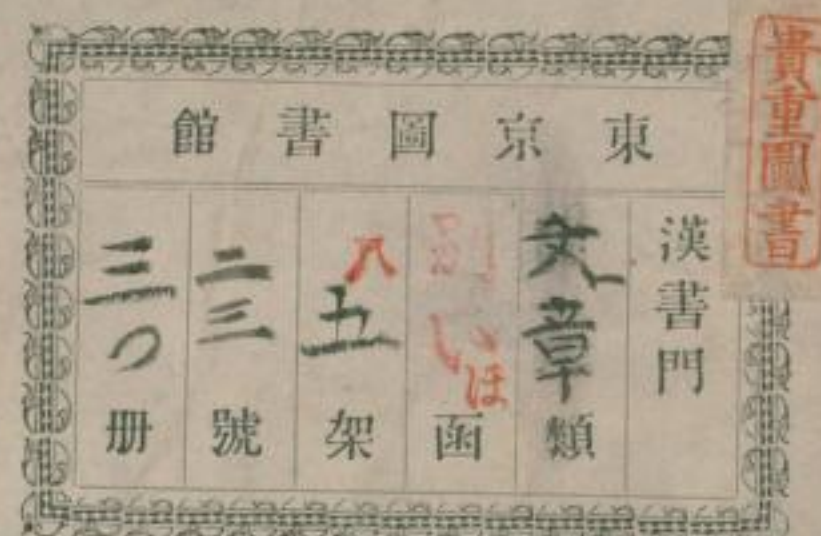 貴重圖書
東京圖書館
漢書門
文章類
別いほ函
八五架
二三號
三〇册